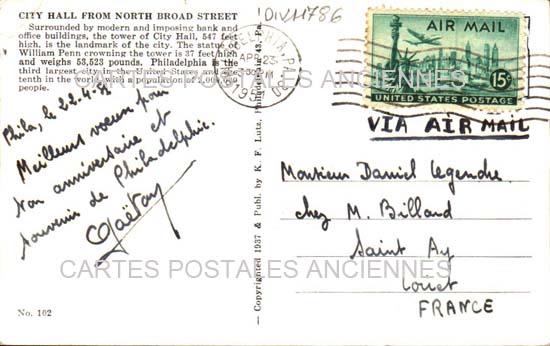 CITY HALL FROM NORTH BROAD STREET
Surrounded by modern and imposing bank and
office buildings, the tower of City Hall, 547 feet
high, is the landmark of the city. The statue of
William Penn crowning the tower is 37 feet high
and weighs 53,523 pounds. Philadelphia is the
third largest city in the United States and the
tenth in the world with a population of 2,000,000
people.
Phila, le 22.4.51
Meilleurs voeux pour
ton anniversaire et
souvenir de Philadelphie.
Gaëtan
No. 102
— Copyrighted 1937 & Publ. by K. F. Lutz, Philadelphia 43, Pa.
DIVM786
PHILADELPHIA, PA.
APR 23
AIR MAIL
15¢
UNITED STATES POSTAGE
VIA AIR MAIL
Monsieur Daniel Legendre
chez M. Billard
Saint Ay
Loiret
FRANCE
CARTES POSTALES ANCIENNES
CARTES POSTALES ANCIENNES